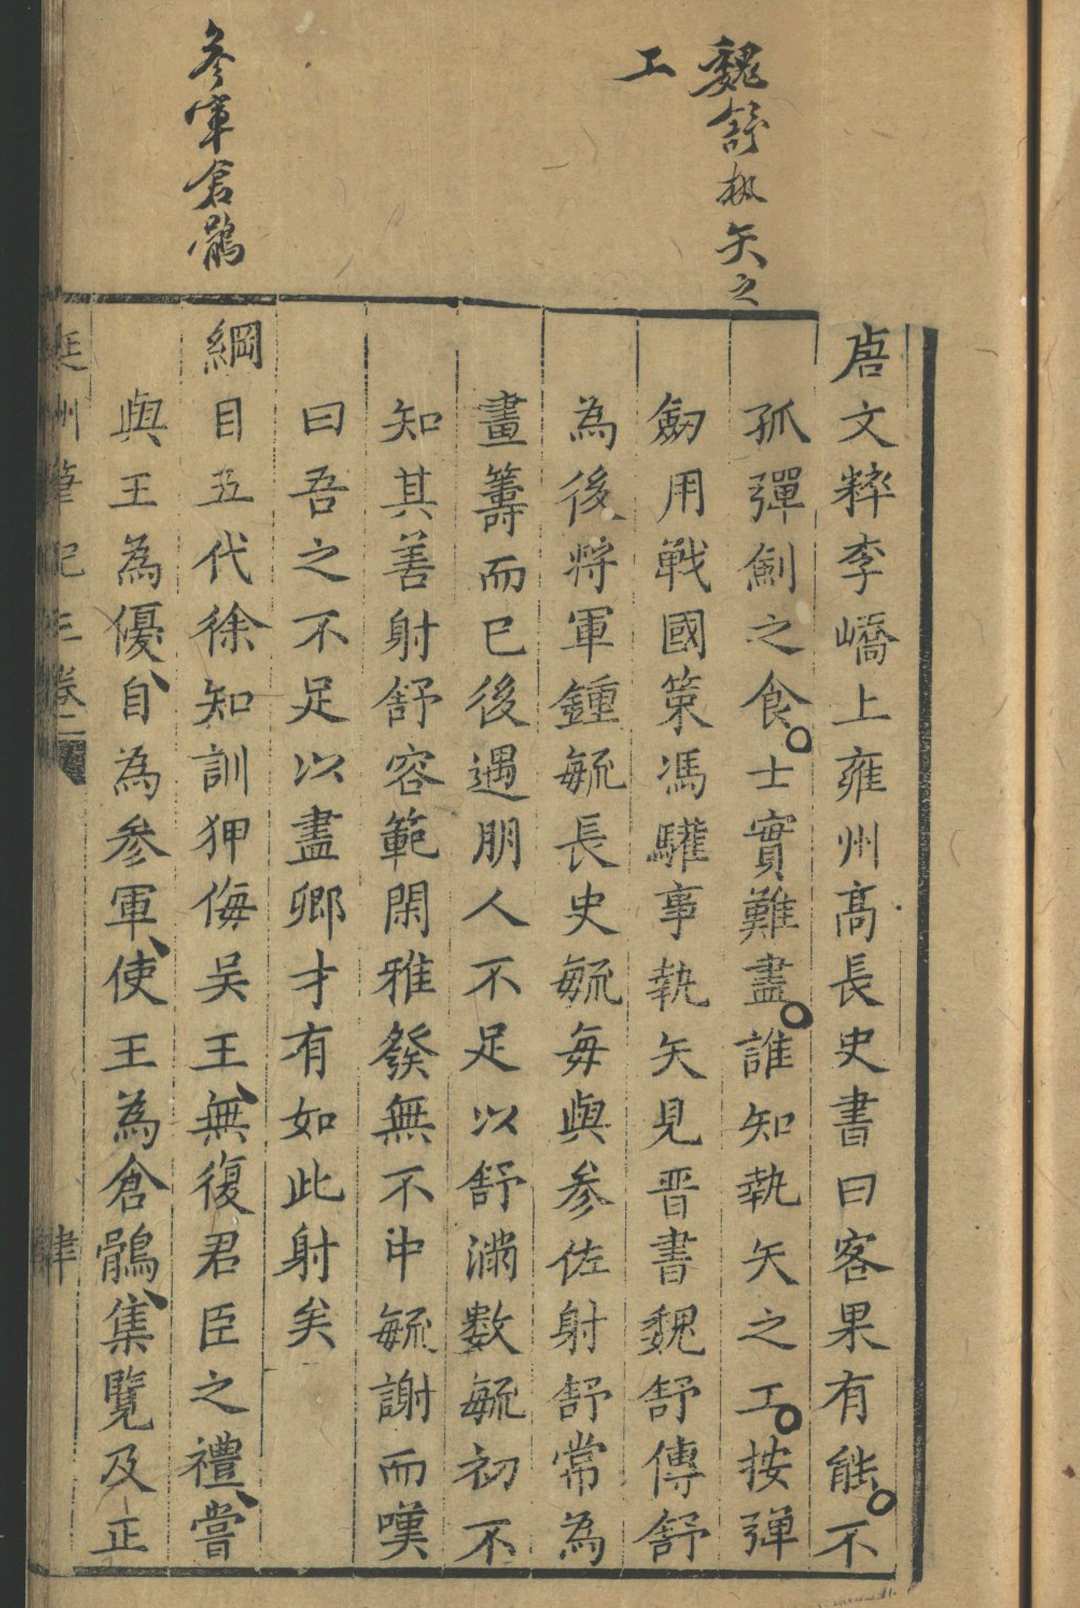 魏舒執矢之
工
參軍倉鶻
唐文粹李嶠上雍州髙長史書曰客果有能不
孤彈劍之食士實難盡誰知執矢之工按彈
劒用戰國策馮驩事執矢見晋書魏舒傳舒
為後將軍鍾毓長史毓每與參佐射舒常為
畫籌而已後遇朋人不足以舒滿數毓初不
知其善射舒容範閑雅發無不中毓謝而嘆
曰吾之不足以盡卿才有如此射矣
綱目五代徐知訓狎侮吴王無復君臣之禮嘗
與王為優自為参軍使王為倉鶻集覽及正
筆記